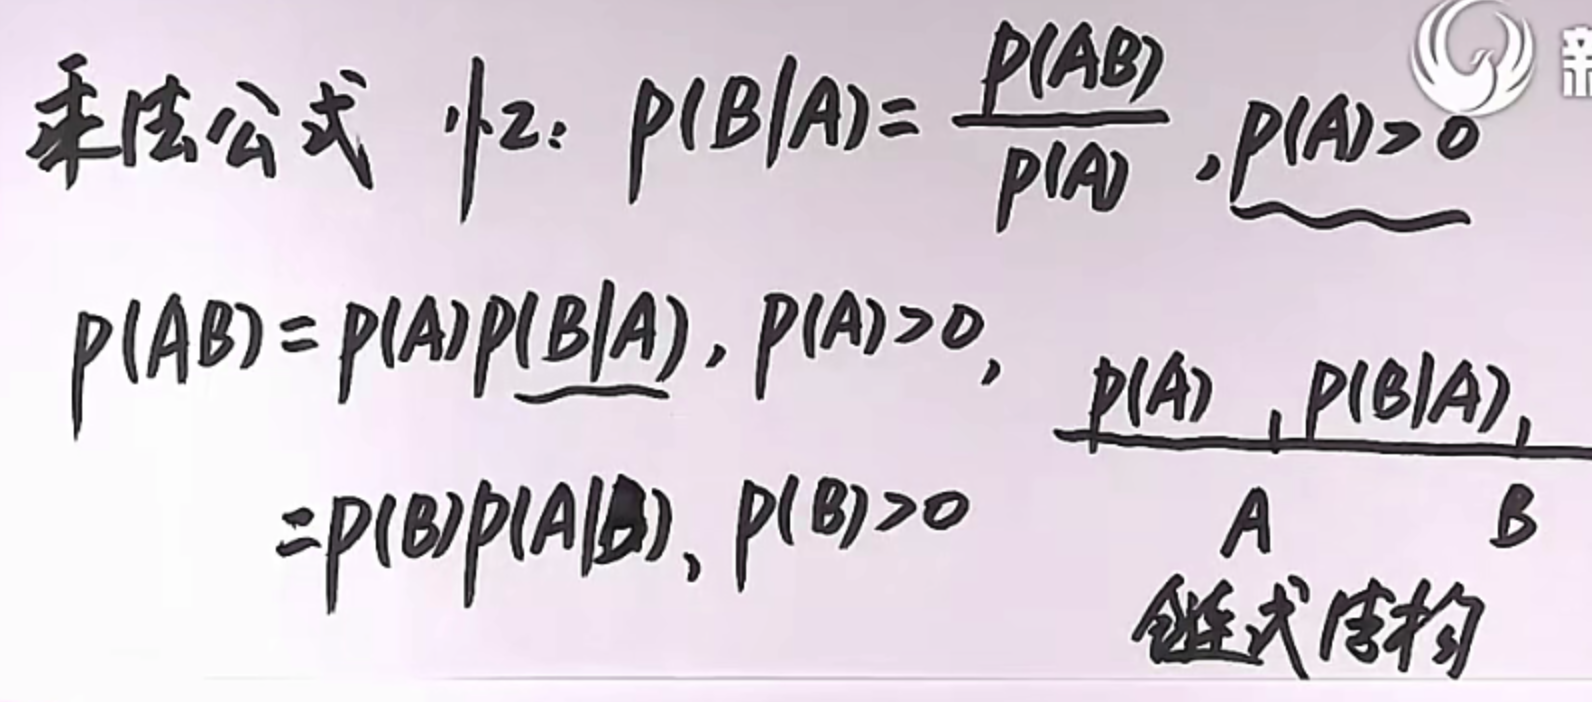 乘法公式 忆: P(B|A)=P(AB)/P(A), P(A)>0
P(AB)=P(A)P(B|A), P(A)>0,
P(A) P(B|A)
=P(B)P(A|B), P(B)>0
A B
链式结构
新